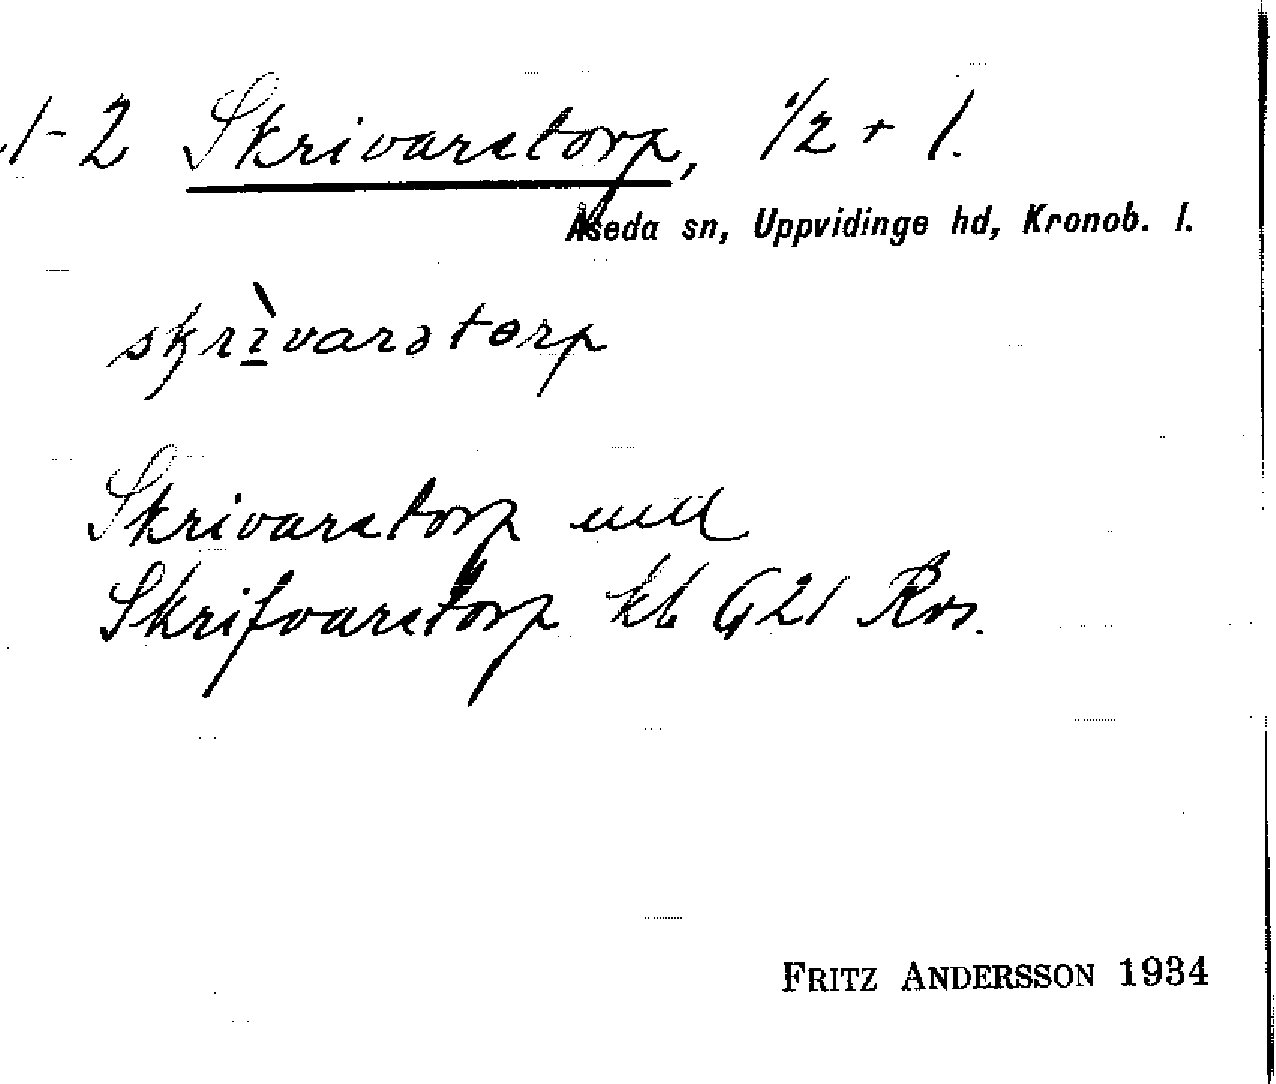 1-2 Skrivaretorp, 1/2 + 1.
Åseda sn, Uppvidinge hd, Kronob. l.
skrìvarətɵrp
Skrivaretorp
Skrifvaretorp kb G21 Ros.
FRITZ ANDERSSON 1934